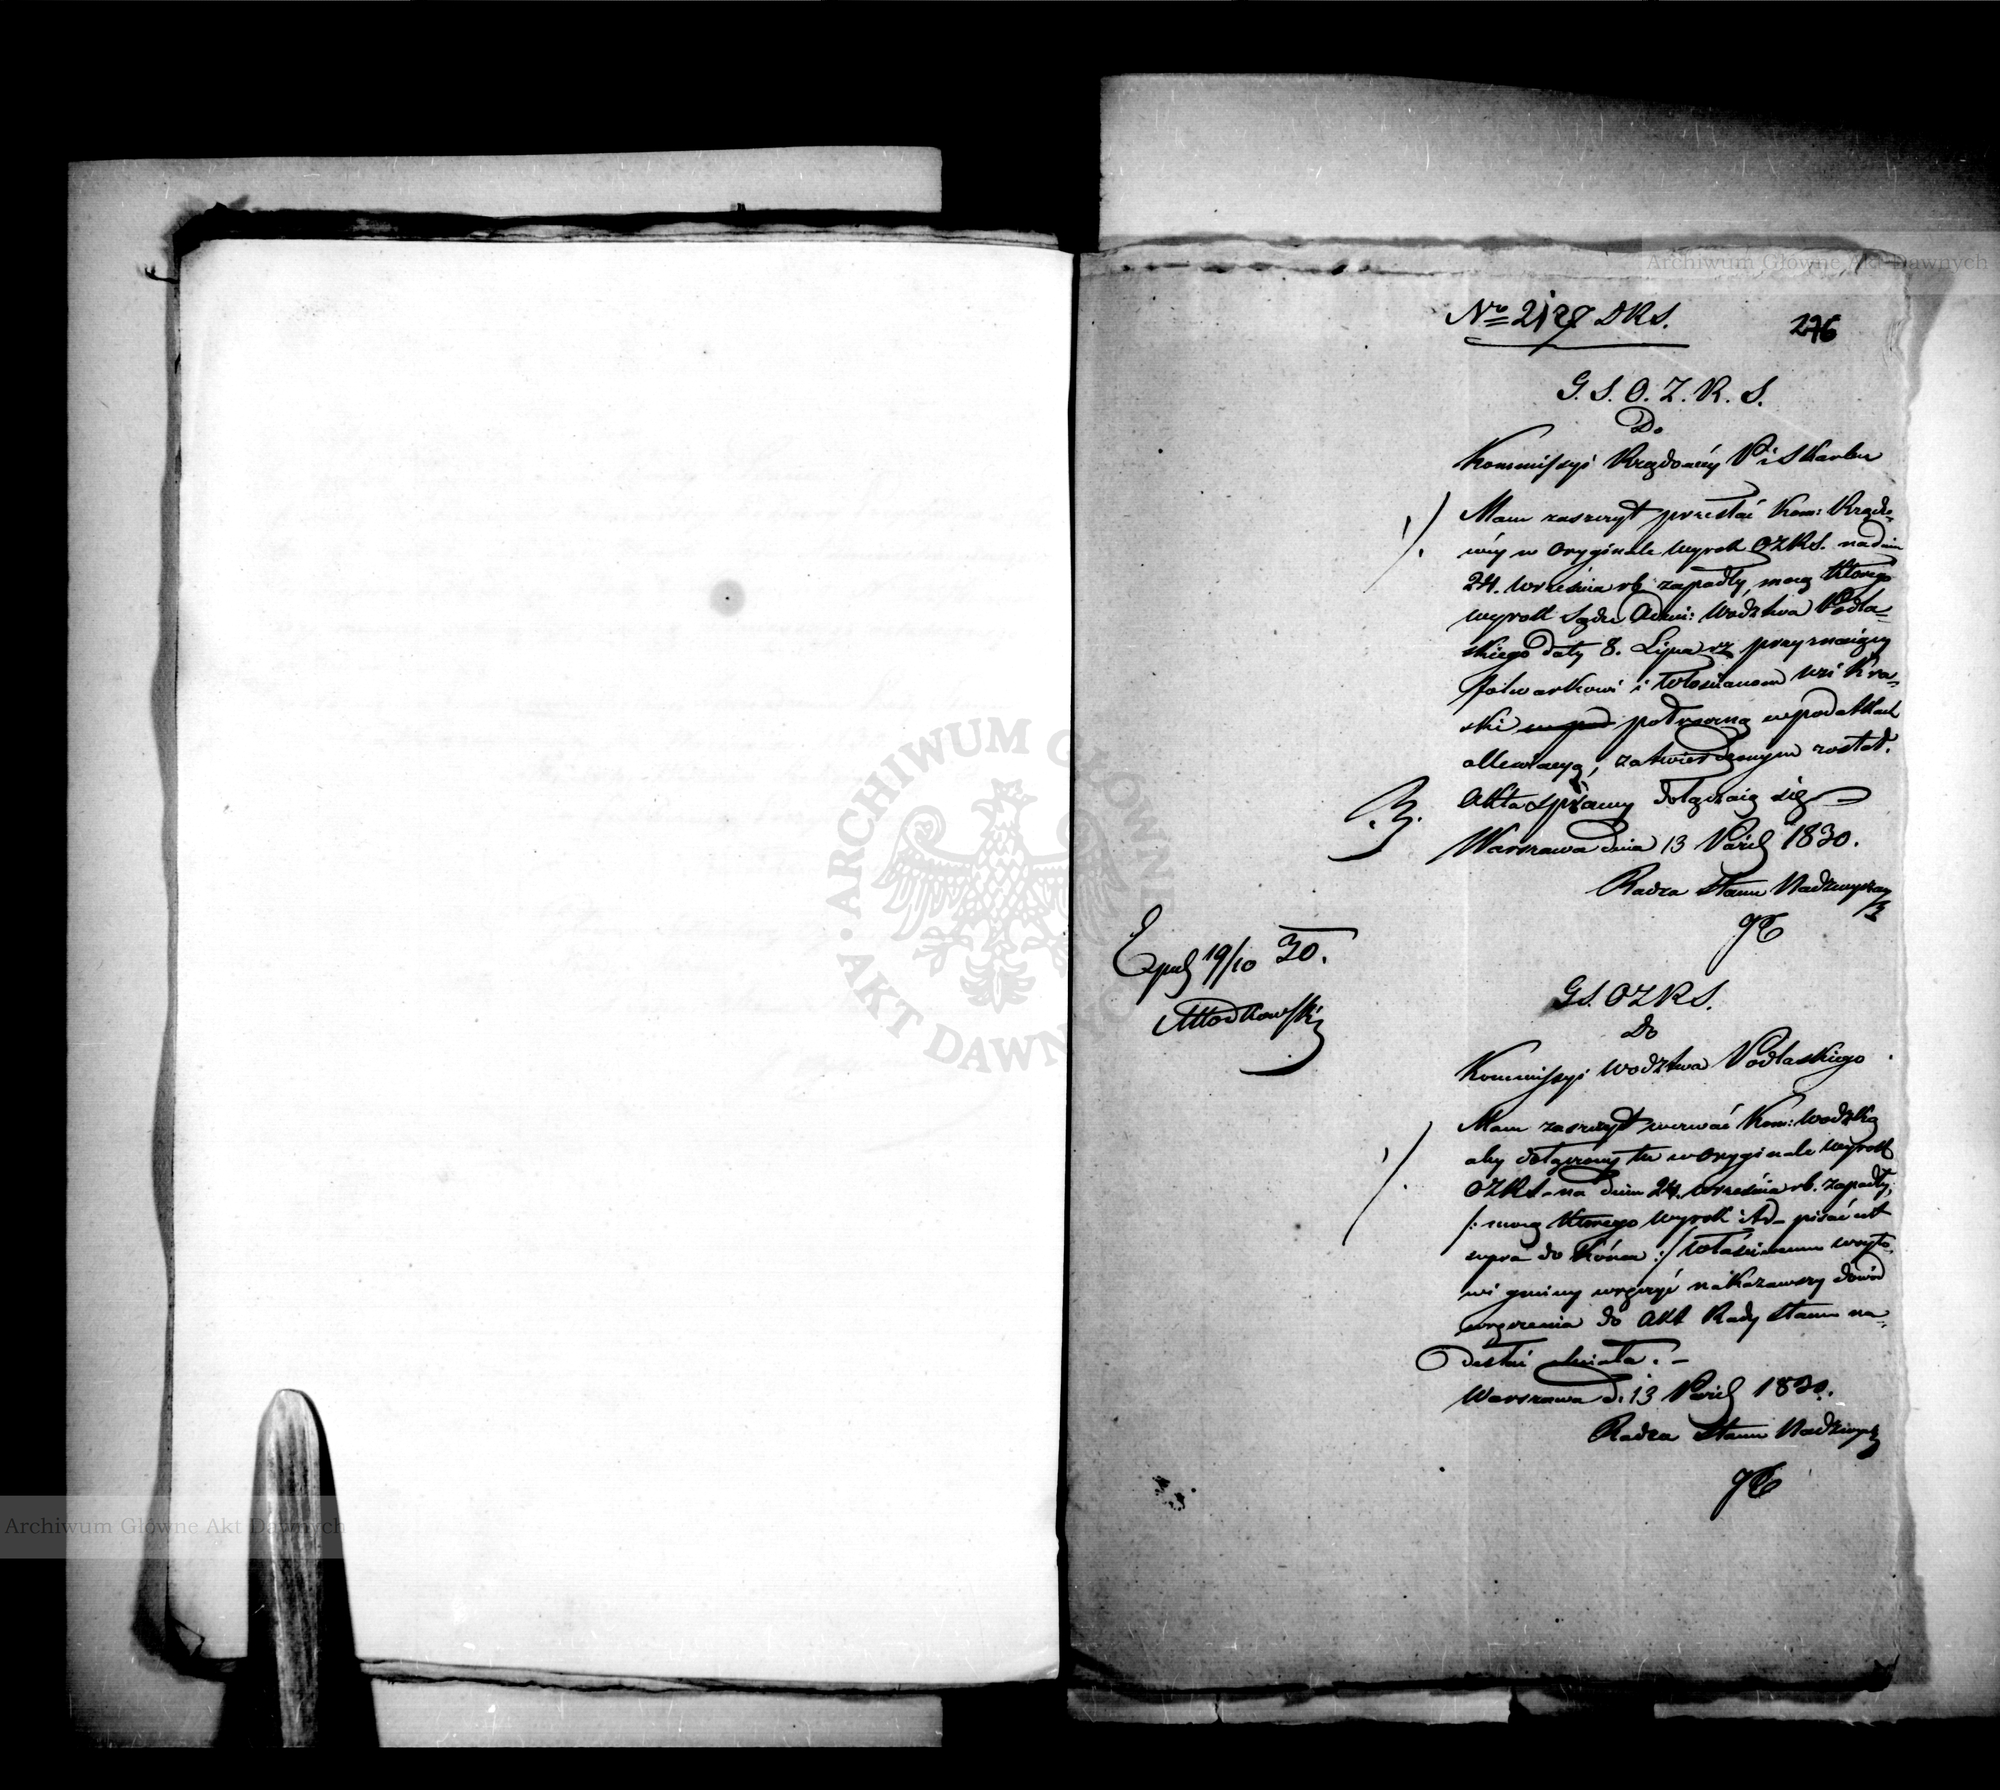 Archiwum Główne Akt Dawnych
No 2128 DKS.
276
G. S. O. Z. R. S.
Do
Kommissyi Rządowéy P i Skarbu
Mam zaszczyt przesłać Kom: Rządo-
wéy w Oryginale wyrok OZRS. na dniu
24. Września rb. zapadły, mocą którego
wyrok Sądu Admi: Wodztwa Podla-
skiego daty 8. Lipca rz przyznaiący
folwarkowi i włościanom wsi Kra-
ski w pod potrzecną w podatkach
allewiacyą, zatwierdzonym został.
Akta sprawy dołączaią się
Warszawa dnia 13 Paźdz 1830.
Radca Stanu Nadzwyczay
Exped 19/10 30.
Młodkowski
GS. OZRS.
Do
Kommissyi Wodztwa Podlaskiego
Mam zaszczyt wezwać Kom: Wodzką
aby dołączony tu w Oryginale wyrok
OZRS. na dniu 24. Września rb. zapadły,
/: mocą którego wyrok itd - pisać ut
supra do końca :/ właściwemu wóyto-
wi gminy wręczyć nakazawszy dowód
wręczenia do Akt Rady Stanu na-
desłać chciała. -
Warszawa d. 13 Paźdz 1830.
Radca Stanu Nadzwycz
ARCHIWUM GŁÓWNE
AKT DAWNYCH
Archiwum Główne Akt Dawnych